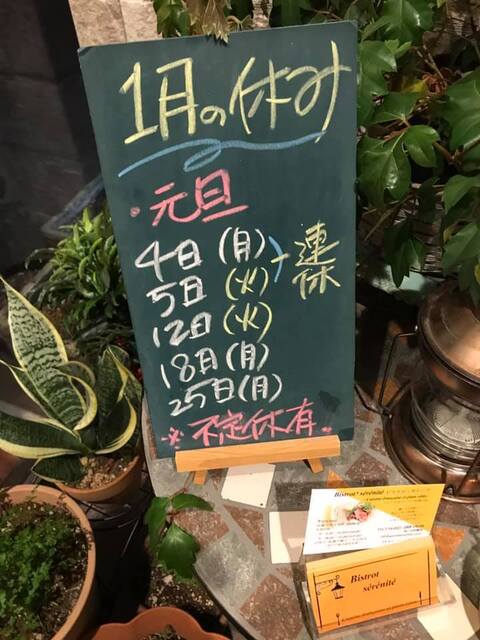 1月の休み
・元旦
4日(月)
5日(火)
連休
12日(火)
18日(月)
25日(月)
※不定休有。
Bistrot sérénité
Bistrot
sérénité